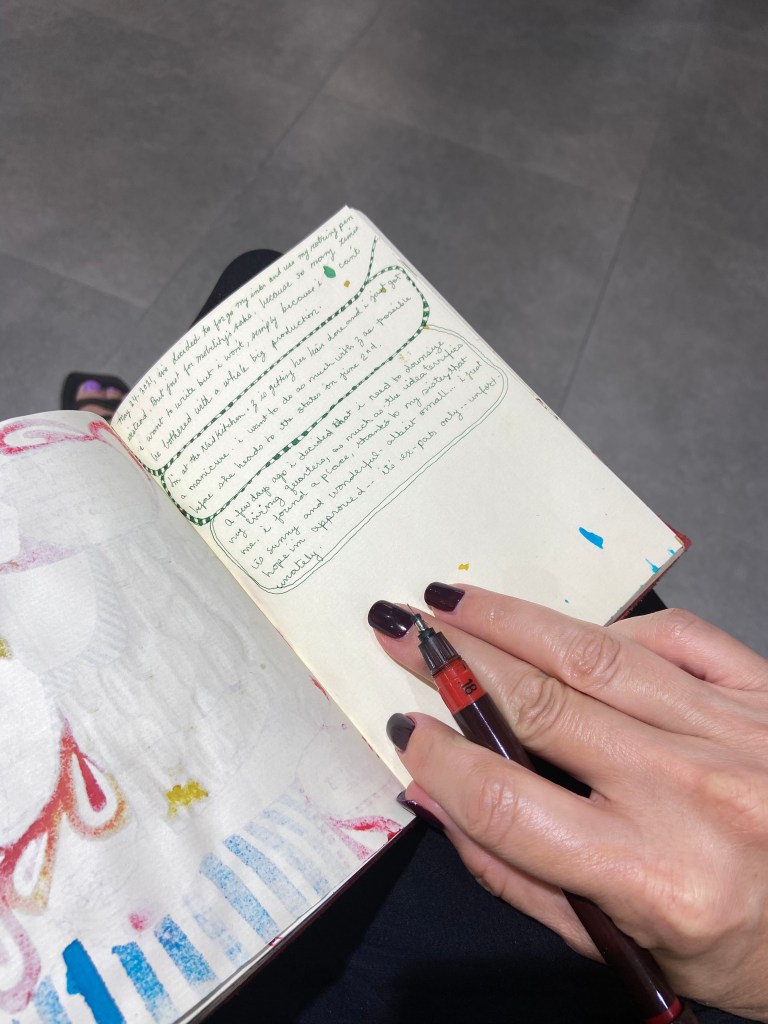 May 24. 2021, i've decided to forgo my and use my rotring pen
instead. But just for mobility's sake. because so many times
i want to write but i wont, simply because i cant
be bothered with a whole big production.
I'm at the Nail Kitchen. is getting her hair done and i just got
a manicure. i want to do as much with as possible
before she heads to the states on june 2nd.
A few days ago i decided that i need to downsize
my living quarters, as much as the idea terrifies
me. i found a place, thanks to my sister, that
is sunny and wonderful- albeit small.. i just
hope im approved -- its ex-pats only.. unfort-
unately.
.18